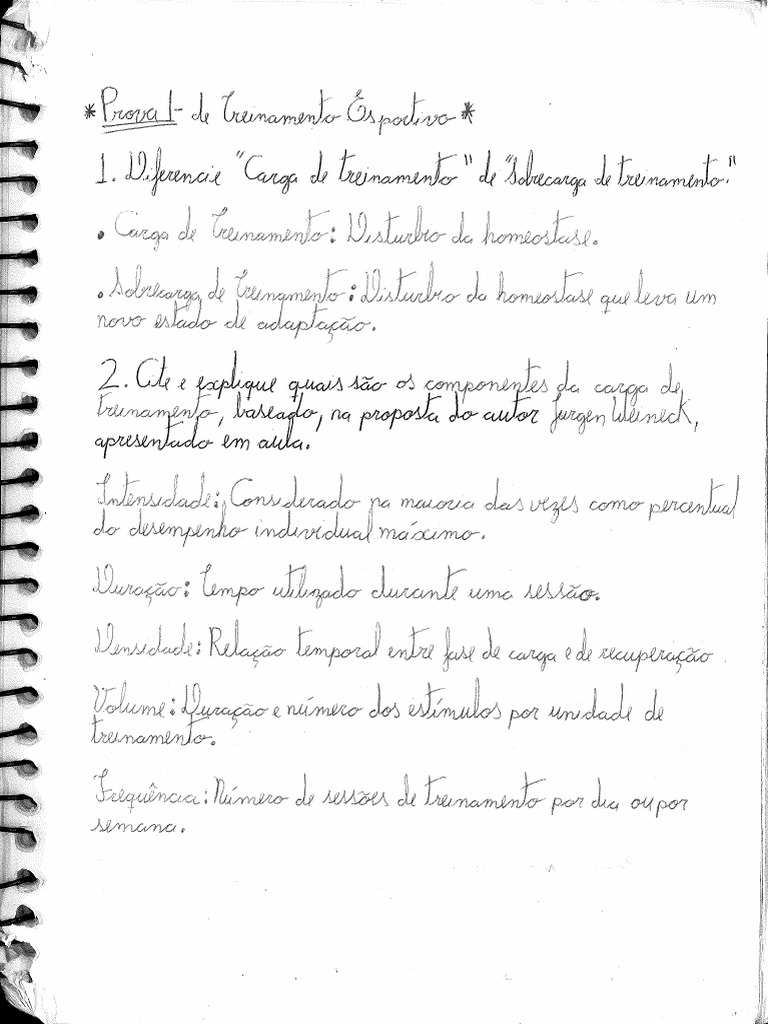 *Prova 1- de Treinamento Esportivo*
1. Diferencie "Carga de treinamento" de "Sobrecarga de treinamento."
• Carga de Treinamento: Disturbio da homeostase.
• Sobrecarga de Treinamento: Disturbio da homeostase que leva um
novo estado de adaptação.
2. Cite e explique quais são os componentes da carga de
treinamento, baseado, na proposta do autor Jurgen Weineck,
apresentado em aula.
Intensidade: Considerado na maioria das vezes como percentual
do desempenho individual máximo.
Duração: Tempo utilizado durante uma sessão.
Densidade: Relação temporal entre fase de carga e de recuperação
Volume: Duração e número dos estímulos por unidade de
treinamento.
Frequência: Número de sessões de treinamento por dia ou por
semana.